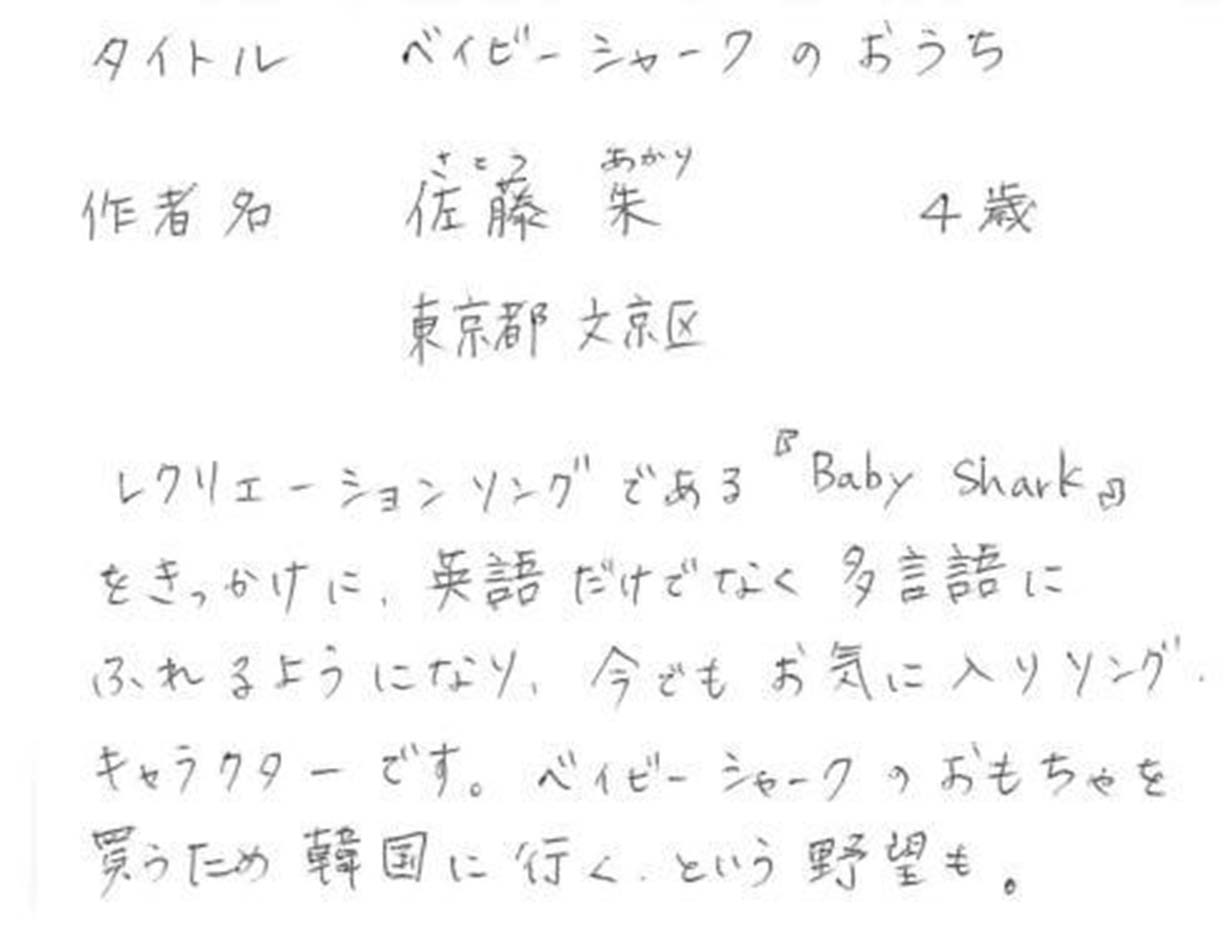 タイトル ベイビーシャークのおうち
さとう あかり
作者名 佐藤 朱 4歳
東京都 文京区
レクリエーションソングである『Baby Shark』
をきっかけに、英語だけでなく多言語に
ふれるようになり、今でもお気に入りソング、
キャラクターです。ベイビーシャークのおもちゃを
買うため韓国に行く、という野望も。